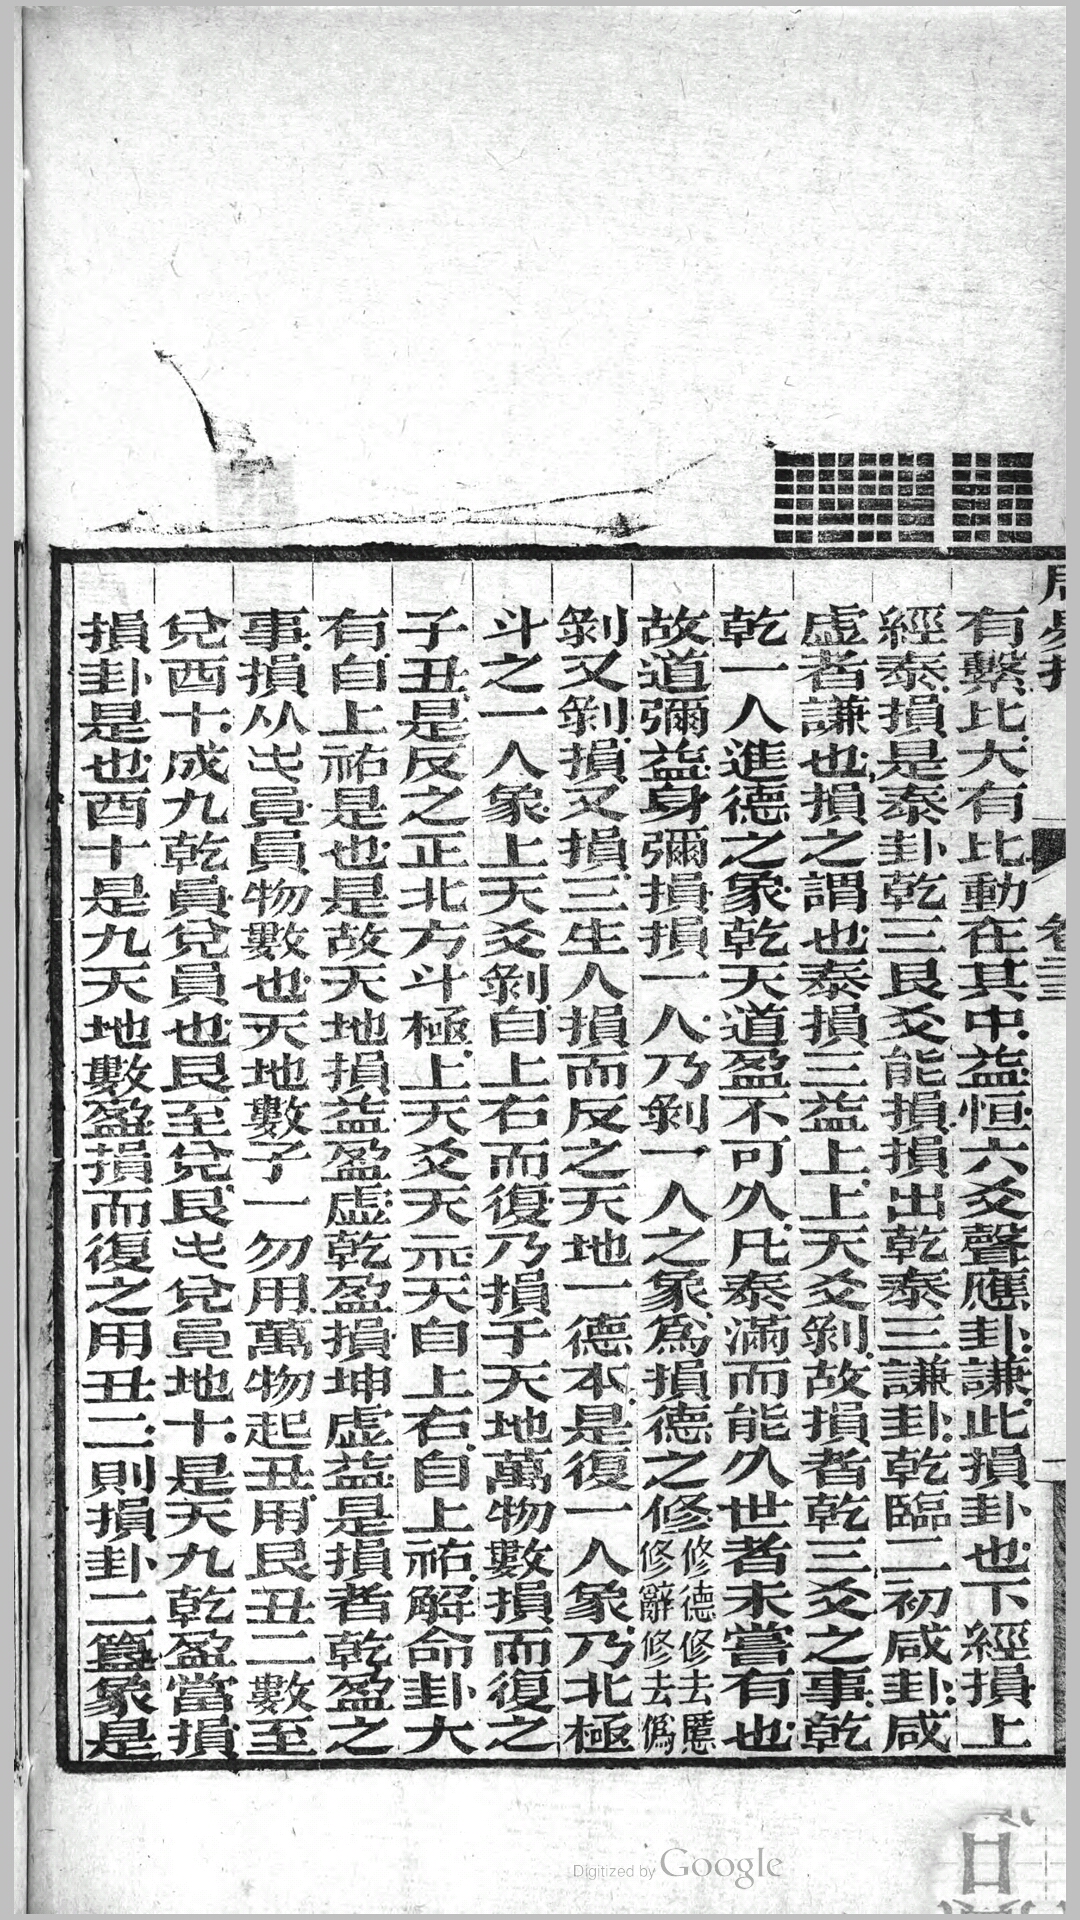 有繫比大有比動在其中益恒六爻聲應卦謙此損卦也下經損上
經泰損是泰卦乾三艮爻能損損出乾泰三謙卦乾臨二初咸卦咸
虛者謙也損之謂也泰損三益上上天爻剝故損者乾三爻之事乾
乾一人進德之象乾天道盈不可久凡泰滿而能久世者未嘗有也
故道彌益身彌損損一人乃剝一人之象為損德之修修德修去慝修辭修去偽
剝又剝損又損三生人損而反之天地一德本是復一人象乃北極
斗之一人象上天爻剝自上右而復乃損于天地萬物數損而復之
子丑是反之正北方斗極上天爻天元天自上右自上祐解命卦大
有自上祐是也是故天地損益盈虛乾盈損坤虛益是損者乾盈之
事損从員員物數也天地數子一勿用萬物起丑用艮丑二數至
兌酉十成九乾員兌員也艮至兌艮兌員地十是天九乾盈當損
損卦是也酉十是九天地數盈損而復之用丑二則損卦二簋象是
卷三
Digitized by Google